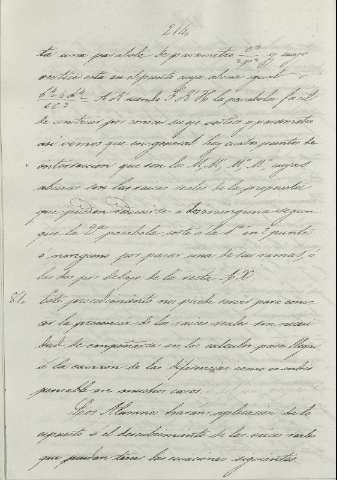 214
ta una parabola de parametro y cuyo
vertice esta en el punto cuya
Asi siendo F B H la parabola facil
de construir por conocer cuyo vertice y parametro
asi vemos que en general hay cuatro puntos de
interseccion que son los M, M, M, M, cuyas
son las raices reales de la propuesta
que pueden reducirse a dos o ninguna segun
que la 2ª parabola corte a la 1ª en 2 puntos
o ninguno por pasar una de sus ramas, o
las dos por debajo de la recta A X.
81. Este procedimiento nos puede servir para cono-
cer la presencia de las raices reales sin necesi-
dad de en los calculos para llegar
á la ecuacion de las diferencias como es indis-
pensable en muchos casos.
Los Alumnos haran aplicacion de lo
espuesto á el descubrimiento de las raices reales
que puedan tener las ecuaciones siguientes